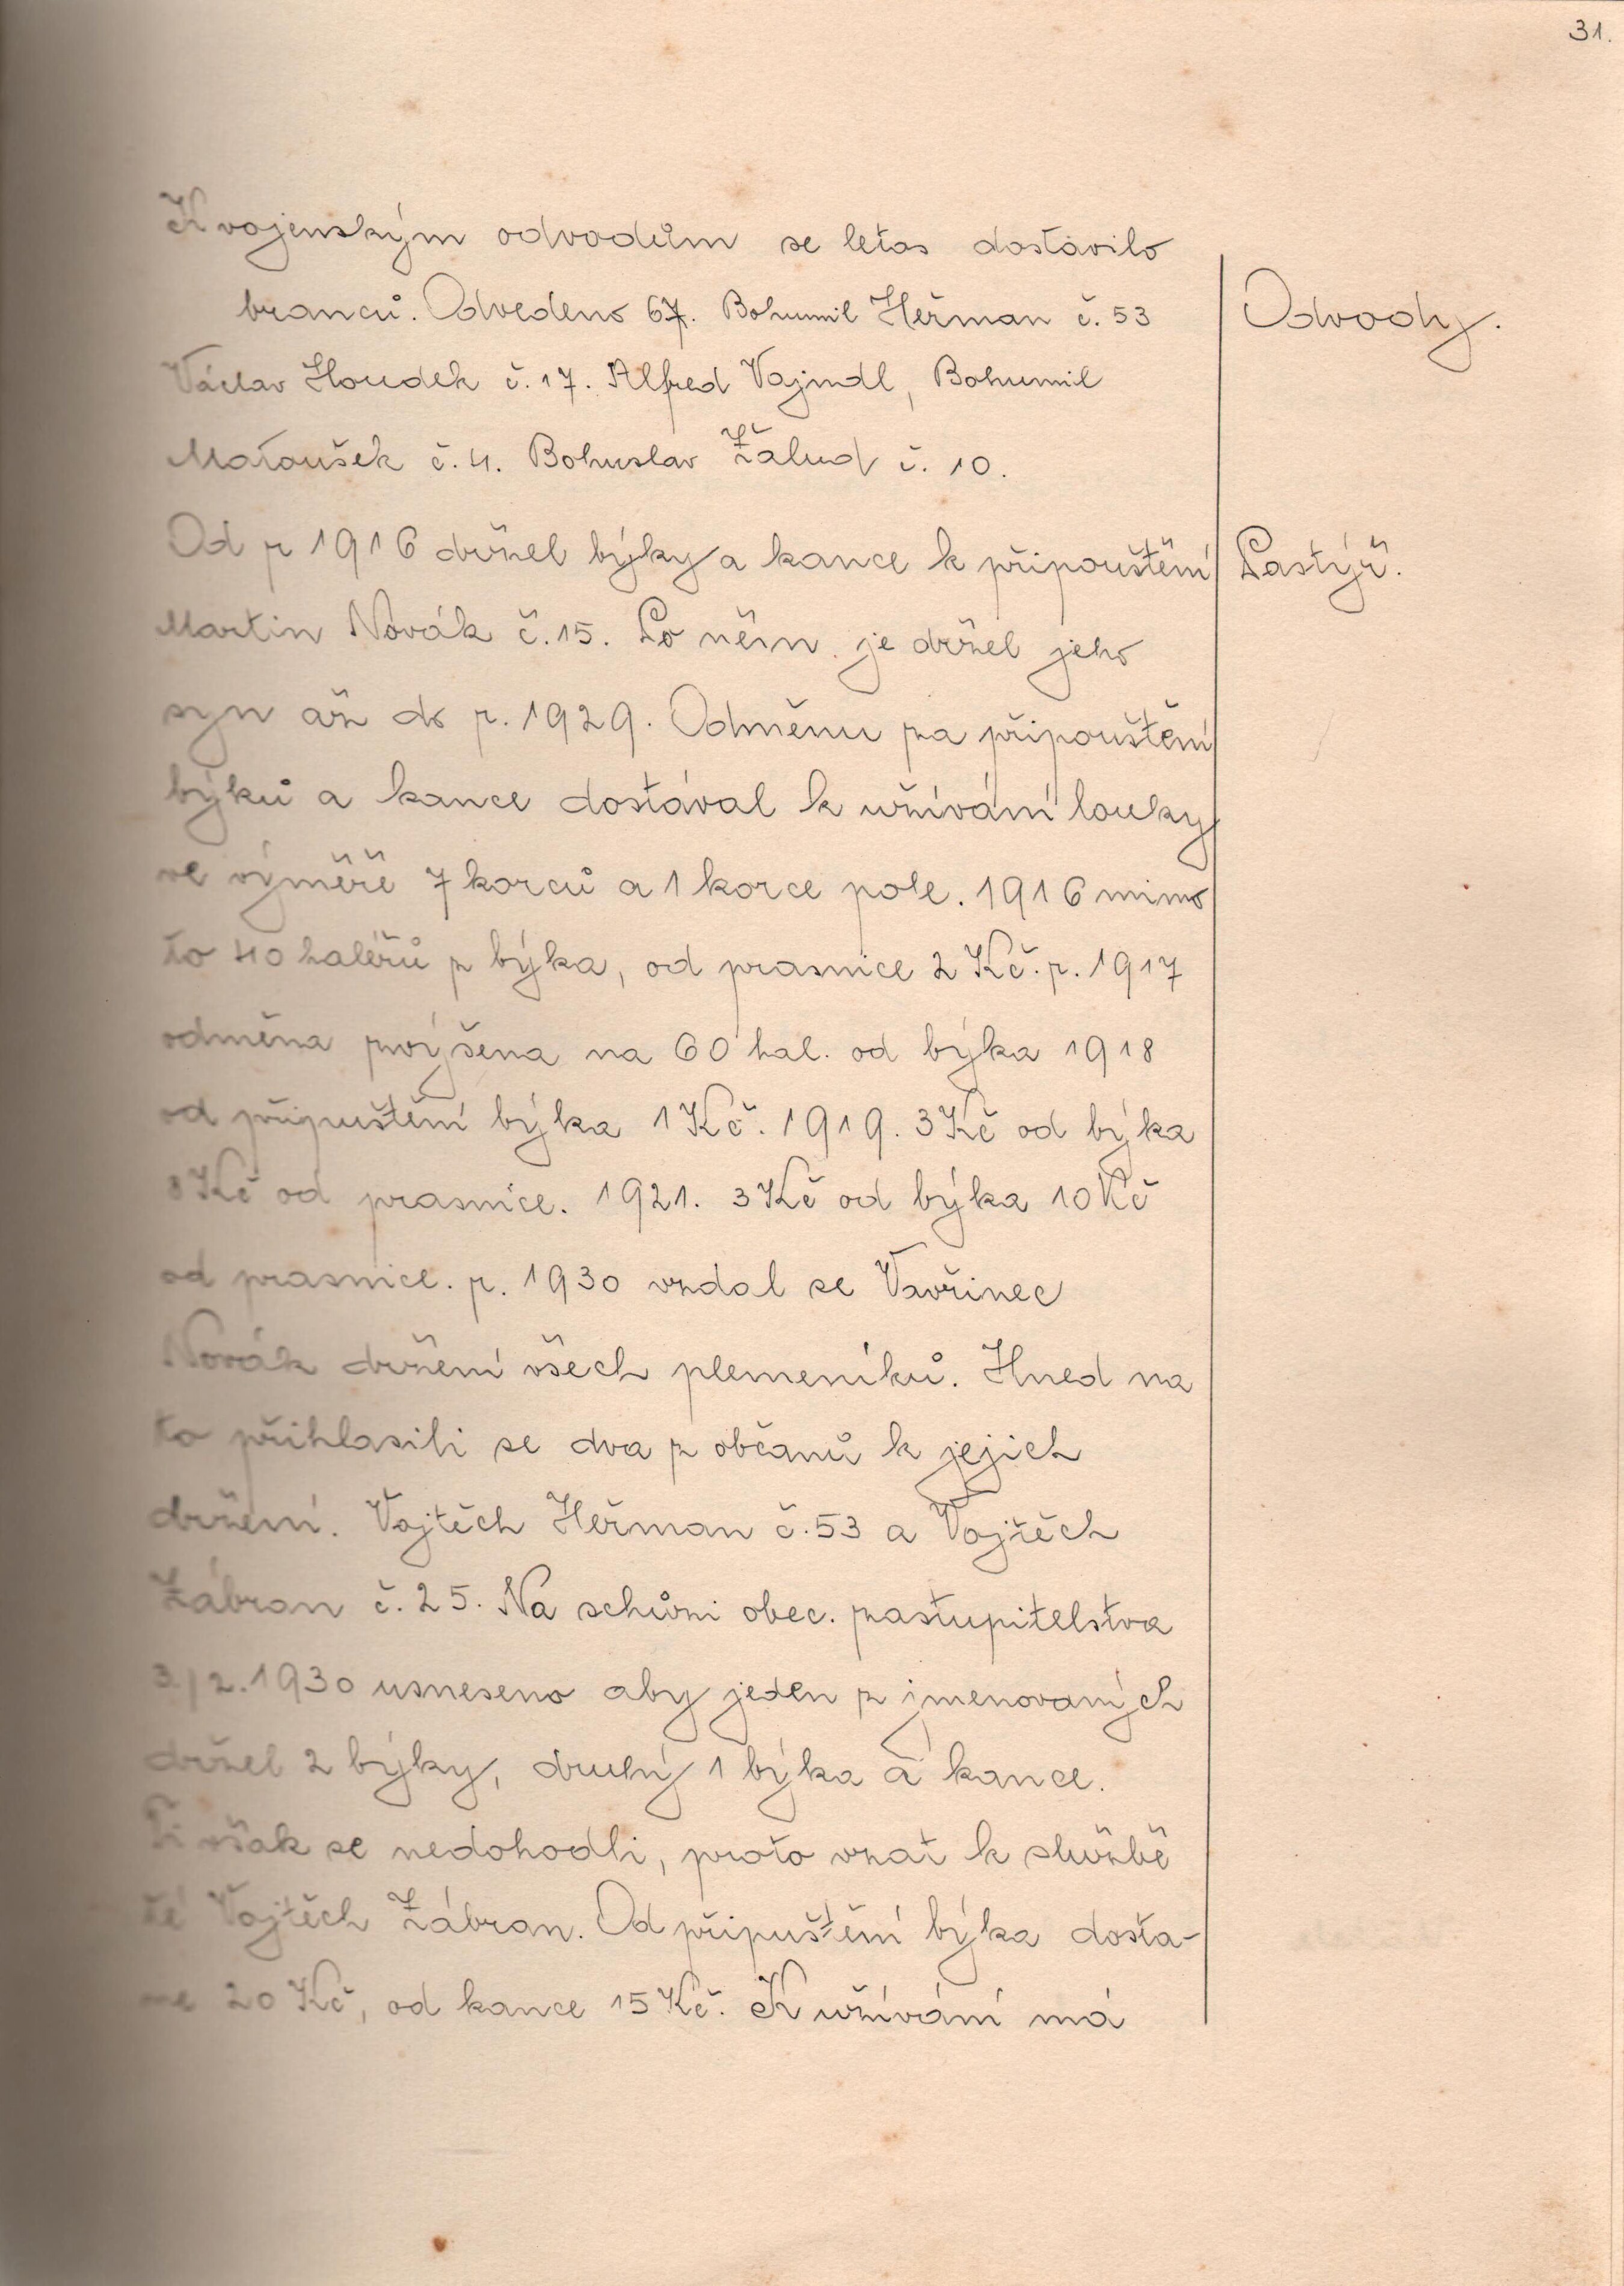 31.
K vojenským odvodům se letos dostavilo
branců. Odvedeno 67. Bohumil Heřman č. 53
Odvody.
Václav Houdek č. 17. Alfred Vajmdl, Bohumil
Matoušek č. 4. Bohuslav Žalud č. 10.
Od r 1916 držel býky a kance k připouštění
Pastýř.
Martin Novák č. 15. Po něm je držel jeho
syn až do r. 1929. Odměnu za připouštění
býků a kance dostával k užívání louky
ve výměře 7 korců a 1 korce pole. 1916 mimo
to 40 haléřů z býka, od prasnice 2 Kč. r. 1917
odměna zvýšena na 60 hal. od býka 1918
od připuštění býka 1 Kč. 1919. 3 Kč od býka
8 Kč od prasnice. 1921. 3 Kč od býka 10 Kč
od prasnice. r. 1930 vzdal se Vavřinec
Novák držení všech plemeníků. Hned na
to přihlasili se dva z občanů k jejich
držení. Vojtěch Heřman č. 53 a Vojtěch
Zábran č. 25. Na schůzi obec. zastupitelstva
3./2. 1930 usneseno aby jeden z jmenovaných
držel 2 býky, druhý 1 býka a kance.
Ti však se nedohodli, proto vzat k službě
té Vojtěch Zábran. Od připuštění býka dosta-
ne 20 Kč, od kance 15 Kč. K užívání má